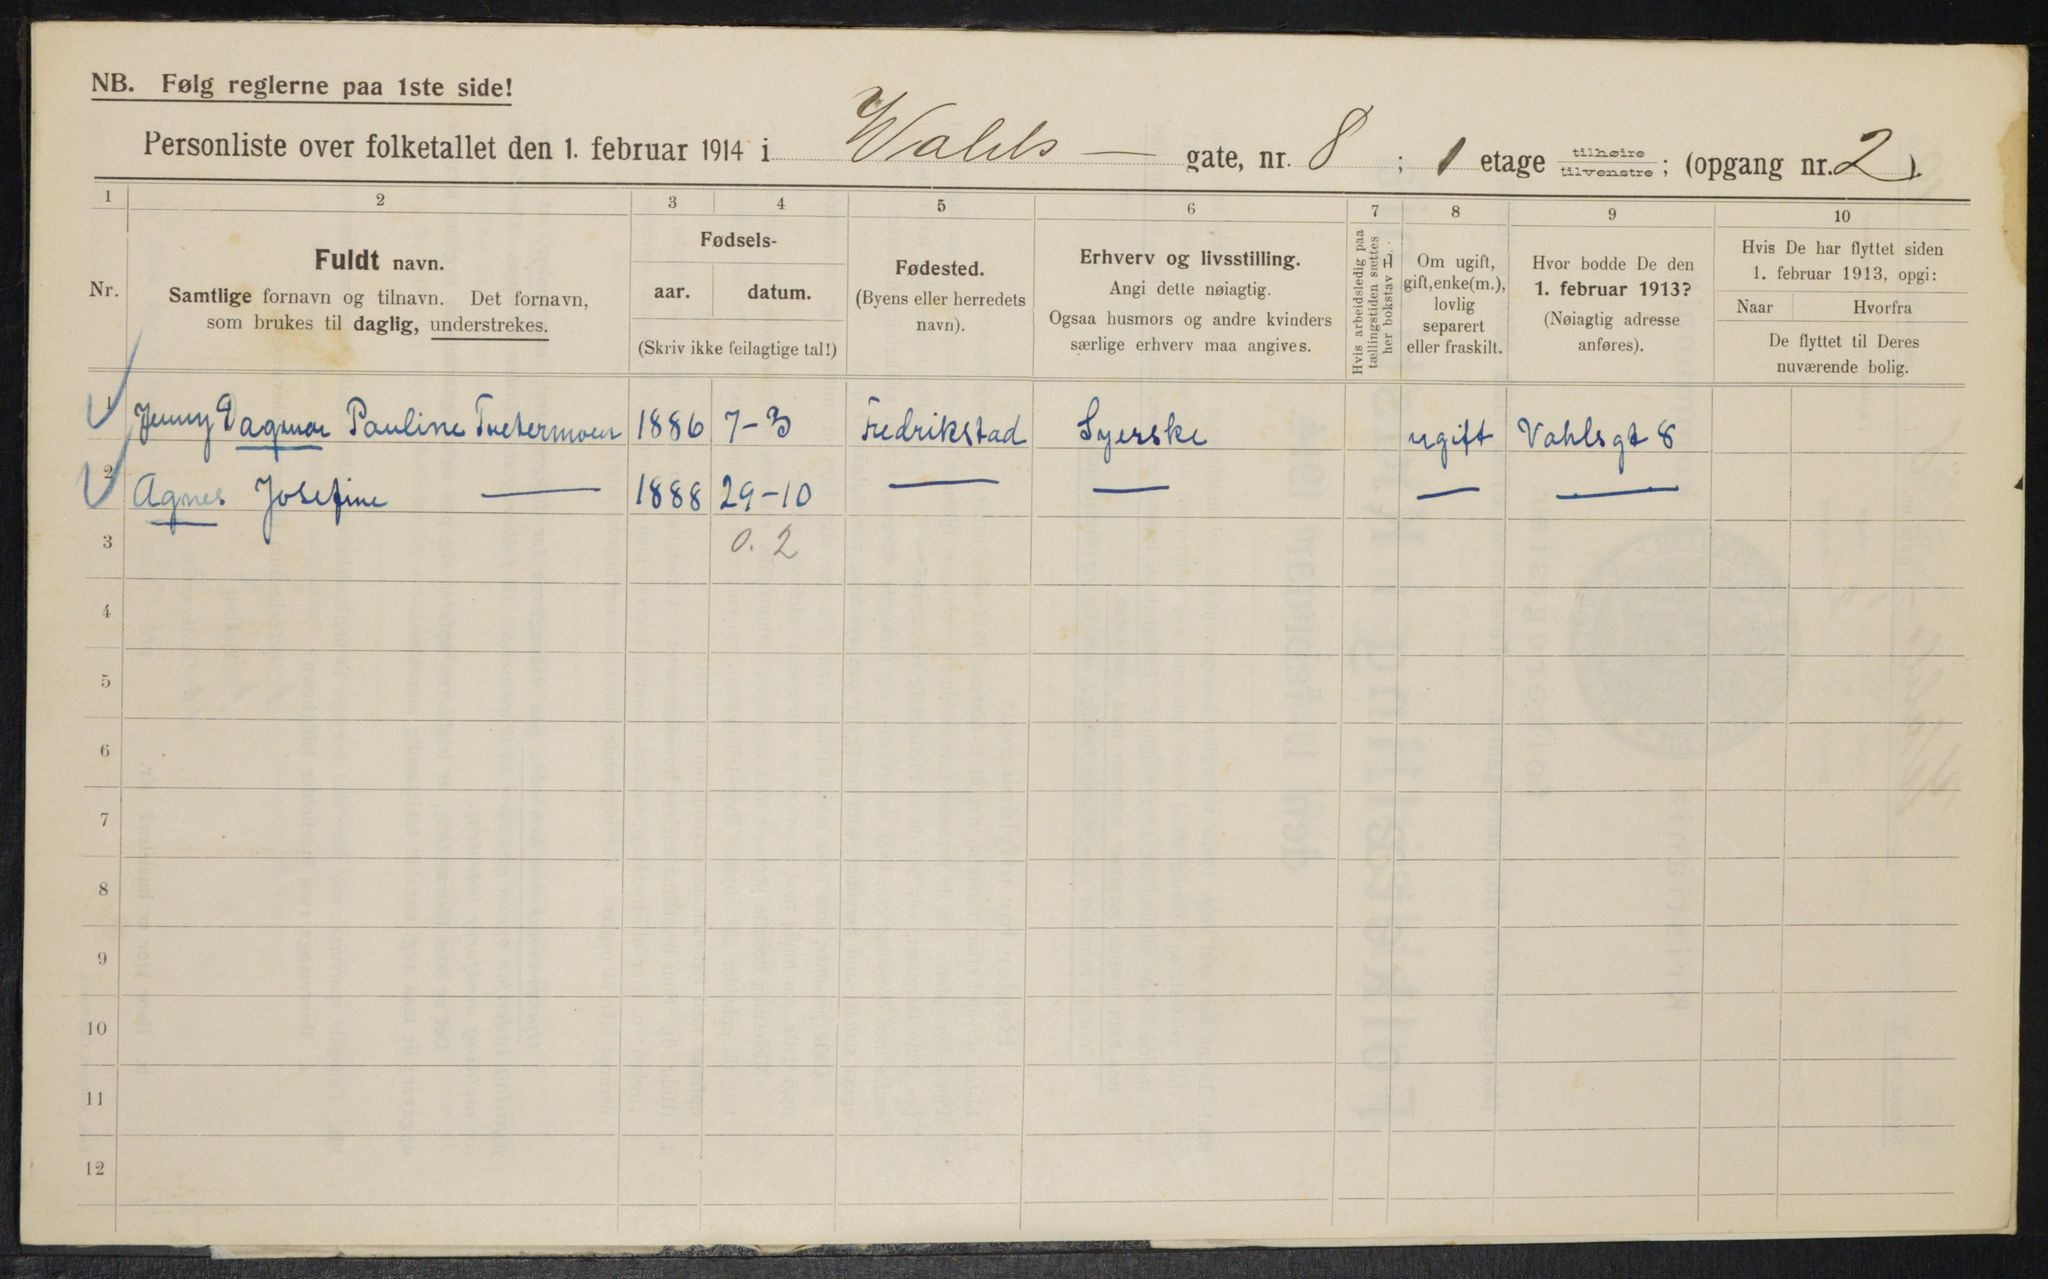 NB. Følg reglerne paa 1ste side!
Personliste over folketallet den 1. februar 1914 i Wahls — gate, nr. 8 ; 1 etage tilhøire/tilvenstre ; (opgang nr. 2 ).
1 2 3 4 5 6 7 8 9 10
Nr.
Fuldt navn.
Samtlige fornavn og tilnavn. Det fornavn,
som brukes til daglig, understrekes.
Fødsels-
aar. datum.
(Skriv ikke feilagtige tal!)
Fødested.
(Byens eller herredets
navn).
Erhverv og livsstilling.
Angi dette nøiagtig.
Ogsaa husmors og andre kvinders
særlige erhverv maa angives.
Hvis arbeidsledig paa
tællingstiden sættes
her bokstav L.
Om ugift,
gift, enke(m.),
lovlig
separert
eller fraskilt.
Hvor bodde De den
1. februar 1913?
(Nøiagtig adresse
anføres).
Hvis De har flyttet siden
1. februar 1913, opgi:
Naar Hvorfra
De flyttet til Deres
nuværende bolig.
1 Jenny Dagmar Pauline 1886 7-3 Fredrikstad Syerske ugift Vahlsgt 8
2 Agnes Josefine — 1888 29-10 — — — —
3 0. 2
4
5
6
7
8
9
10
11
12